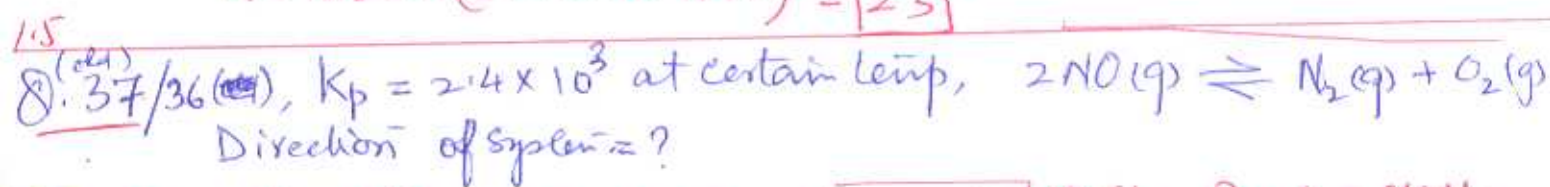 = 23
1.5
8.37/36 (old), Kp = 2.4 × 10³ at certain temp, 2NO(g) ⇌ N₂(g) + O₂(g)
Direction of system = ?